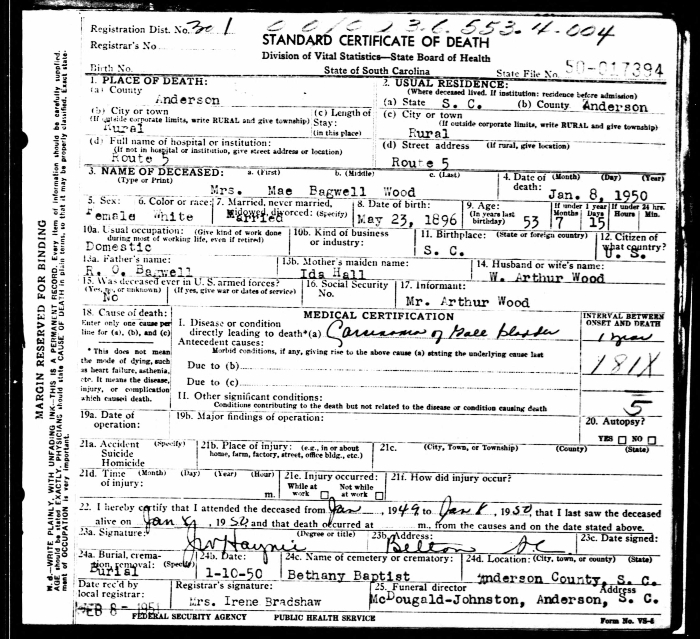 Registration Dist. No. 301
0 0 1 0 2 3.6. 553.4.004
Registrar's No
STANDARD CERTIFICATE OF DEATH
Division of Vital Statistics—State Board of Health
Birth No.
State of South Carolina
State File No. 50-017394
1. PLACE OF DEATH:
(a) County
Anderson
2. USUAL RESIDENCE:
(Where deceased lived. If institution: residence before admission)
(a) State S. C. (b) County Anderson
(b) City or town
(If outside corporate limits, write RURAL and give township)
Rural
(c) Length of
Stay:
(in this place)
(c) City or town
(If outside corporate limits, write RURAL and give township)
Rural
(d) Full name of hospital or institution:
(If not in hospital or institution, give street address or location)
Route 5
(d) Street address (If rural, give location)
Route 5
3. NAME OF DECEASED: a. (First) b. (Middle) c. (Last)
(Type or Print)
Mrs. Mae Bagwell Wood
4. Date of (Month) (Day) (Year)
death:
Jan. 8, 1950
5. Sex:
Female
6. Color or race:
White
7. Married, never married,
widowed, divorced: (Specify)
Married
8. Date of birth:
May 23, 1896
9. Age:
(In years last
birthday)
53
If under 1 year
Months Days
7 15
If under 24 hrs.
Hours Min.
10a. Usual occupation: (Give kind of work done
during most of working life, even if retired)
Domestic
10b. Kind of business
or industry:
11. Birthplace: (State or foreign country)
S. C.
12. Citizen of
what country?
U. S.
13a. Father's name:
R. O. Bagwell
13b. Mother's maiden name:
Ida Hall
14. Husband or wife's name:
W. Arthur Wood
15. Was deceased ever in U.S. armed forces?
(Yes, no, or unknown) (If yes, give war or dates of service)
No
16. Social Security
No.
17. Informant:
Mr. Arthur Wood
18. Cause of death:
Enter only one cause per
line for (a), (b), and (c)
* This does not mean
the mode of dying, such
as heart failure, asthenia,
etc. It means the disease,
injury, or complication
which caused death.
MEDICAL CERTIFICATION
INTERVAL BETWEEN
ONSET AND DEATH
I. Disease or condition
directly leading to death*(a) Carcinoma of Gall bladder
1 year
Antecedent causes:
Morbid conditions, if any, giving rise to the above cause (a) stating the underlying cause last
Due to (b)
181X
Due to (c)
II. Other significant conditions:
Conditions contributing to the death but not related to the disease or condition causing death
5
19a. Date of
operation:
19b. Major findings of operation:
20. Autopsy?
YES NO
21a. Accident (Specify)
Suicide
Homicide
21b. Place of injury: (e.g., in or about
home, farm, factory, street, office bldg., etc.)
21c. (City, Town, or Township) (County) (State)
21d. Time (Month) (Day) (Year) (Hour)
of injury: m.
21e. Injury occurred:
While at work Not while at work
21f. How did injury occur?
22. I hereby certify that I attended the deceased from Jan , 1949 to Jan 8, 1950, that I last saw the deceased
alive on Jan 8, 1950, and that death occurred at m., from the causes and on the date stated above.
23a. Signature: (Degree or title)
JW Haynie
23b. Address:
Belton SC
23c. Date signed:
24a. Burial, crema-
tion, removal: (Specify)
Burial
24b. Date:
1-10-50
24c. Name of cemetery or crematory:
Bethany Baptist
24d. Location: (City, town, or county) (State)
Anderson County, S. C.
Date rec'd by
local registrar:
FEB 8 - 1951
Registrar's signature:
Mrs. Irene Bradshaw
25. Funeral director Address
McDougald-Johnston, Anderson, S. C.
FEDERAL SECURITY AGENCY PUBLIC HEALTH SERVICE
Form No. VS-4
MARGIN RESERVED FOR BINDING
N. B.—WRITE PLAINLY, WITH UNFADING INK—THIS IS A PERMANENT RECORD. Every item of information should be carefully supplied.
AGE should be stated EXACTLY. PHYSICIANS should state CAUSE OF DEATH in plain terms, so that it may be properly classified. Exact state-
ment of OCCUPATION is very important.